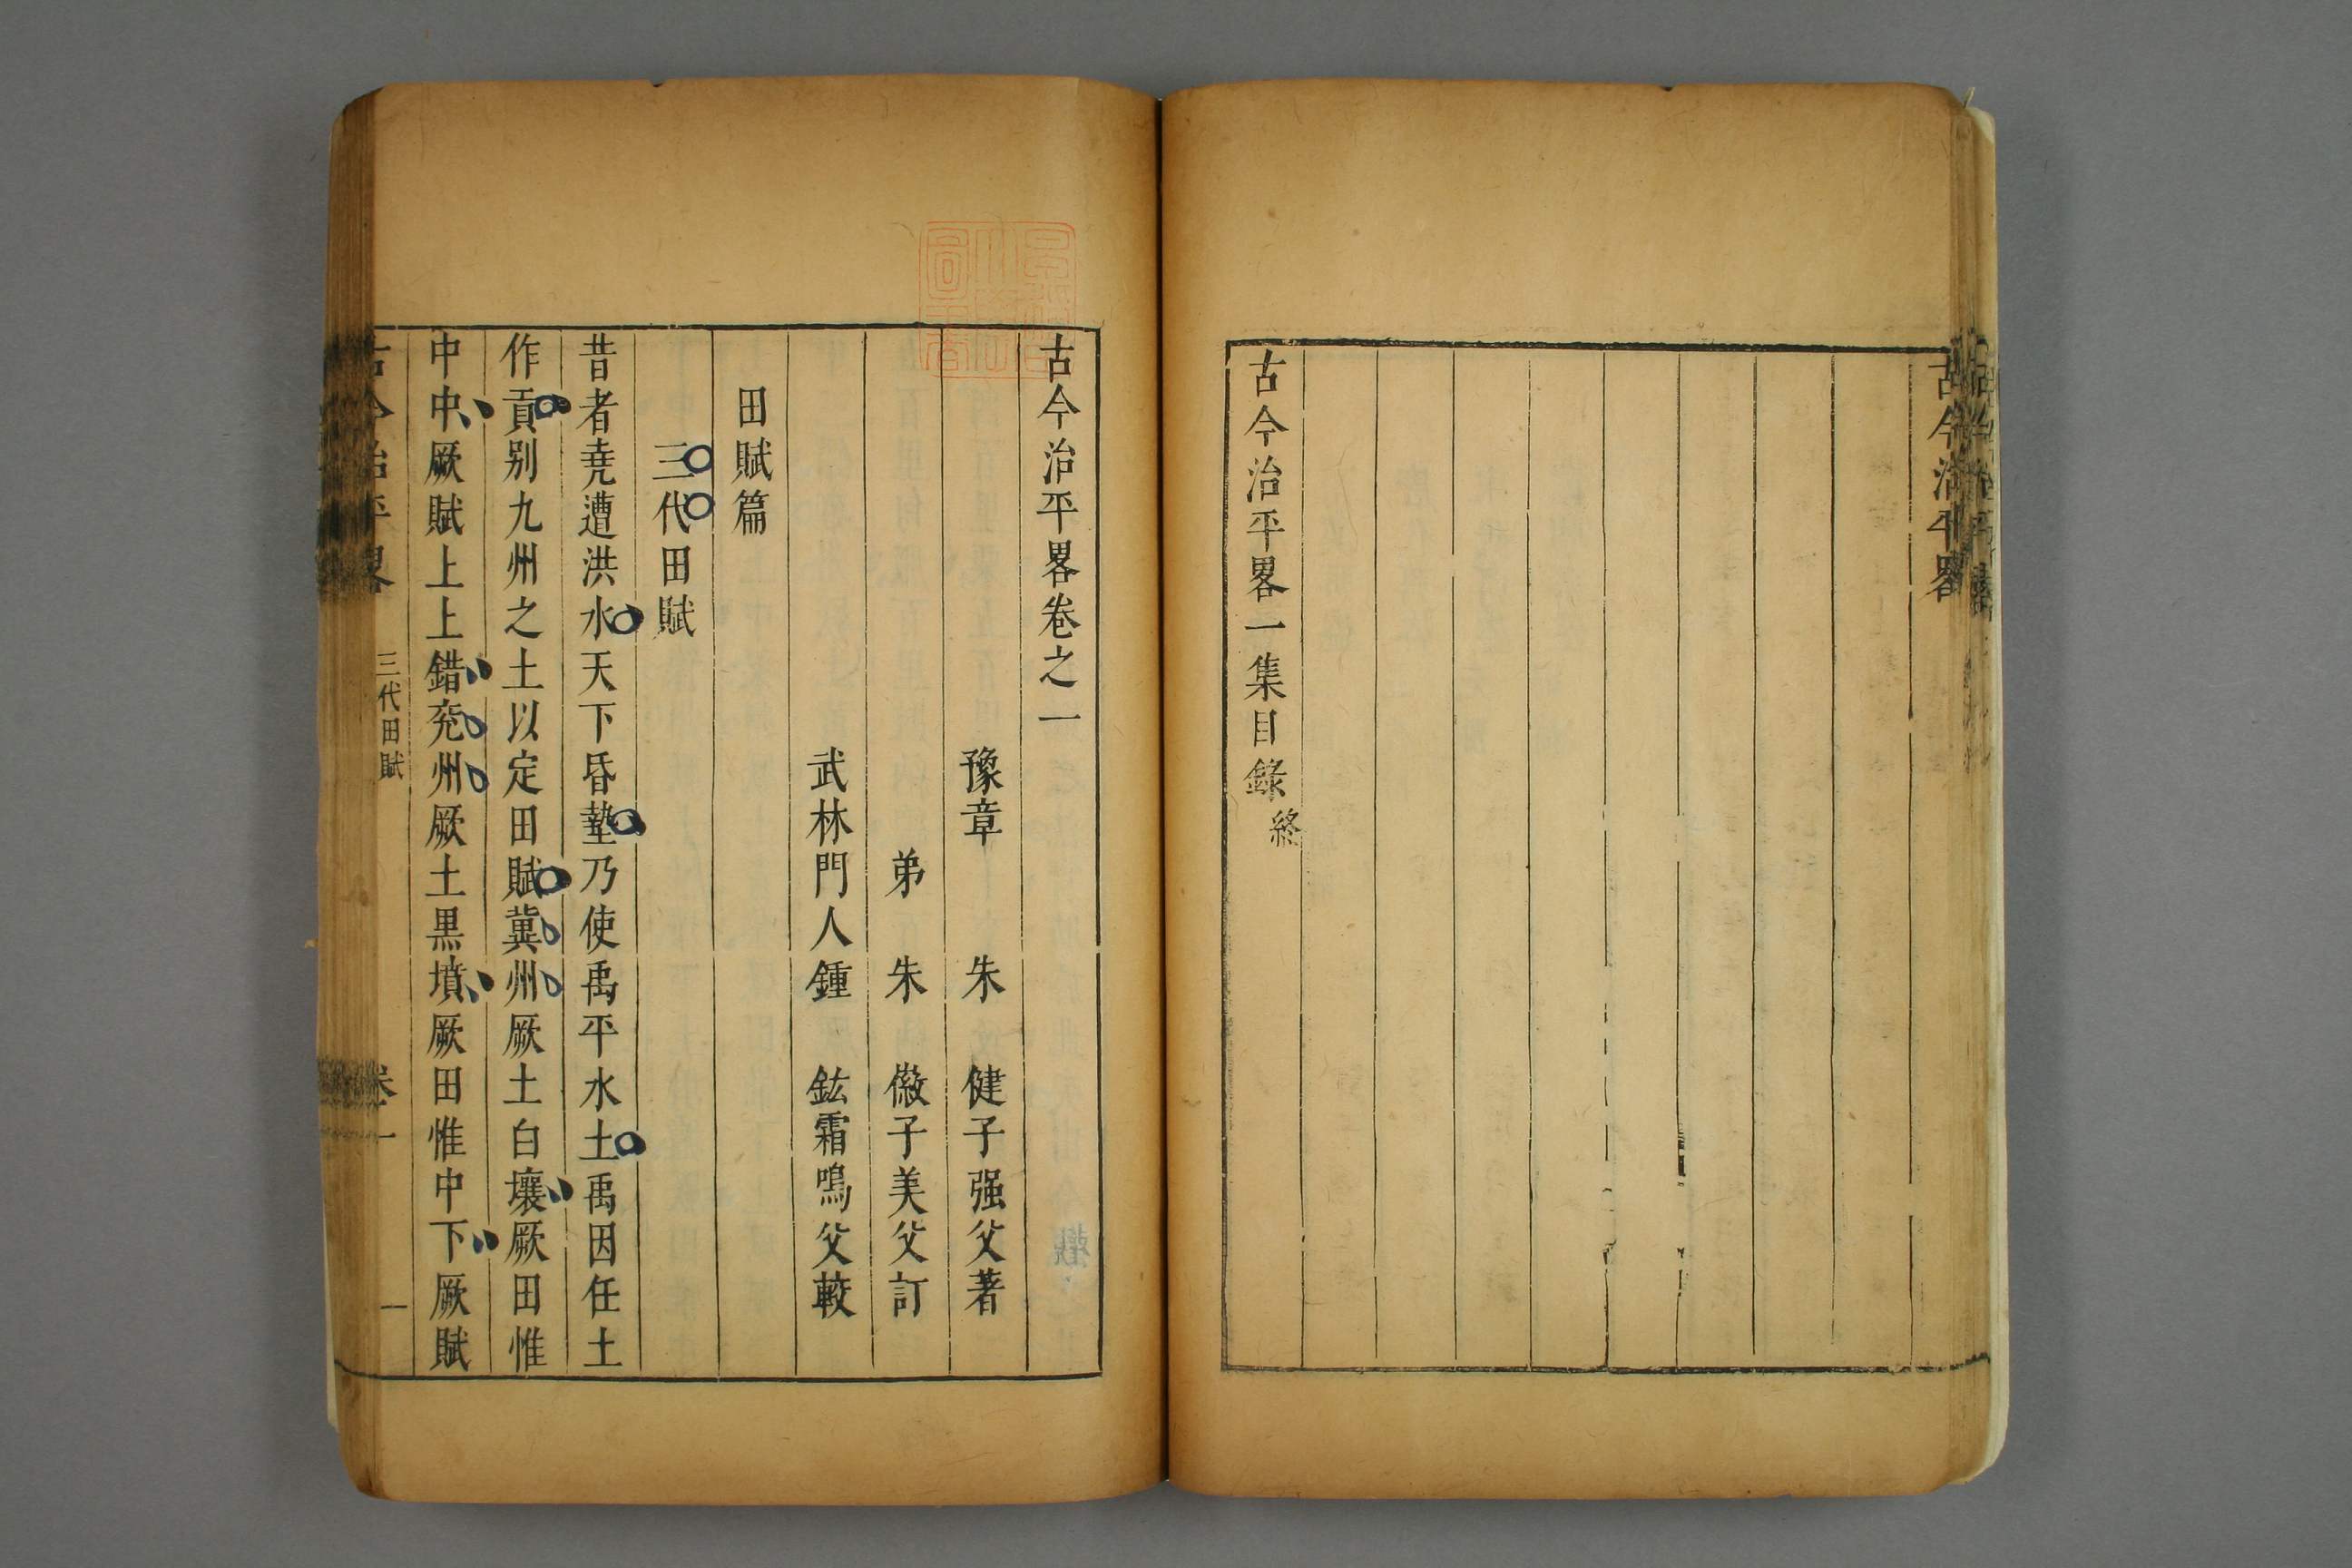 古今治平畧
古今治平畧一集目錄終
古今治平畧卷之一
豫章　朱　健子强父著
弟　朱　㣲子美父訂
武林門人鍾　鈜霜鳴父較
田賦篇
三代田賦
昔者堯遭洪水天下昏墊乃使禹平水土禹因任土
作貢别九州之土以定田賦冀州厥土白壤厥田惟
中中厥賦上上錯兖州厥土黒墳厥田惟中下厥賦
古今治平畧　三代田賦　卷一　一